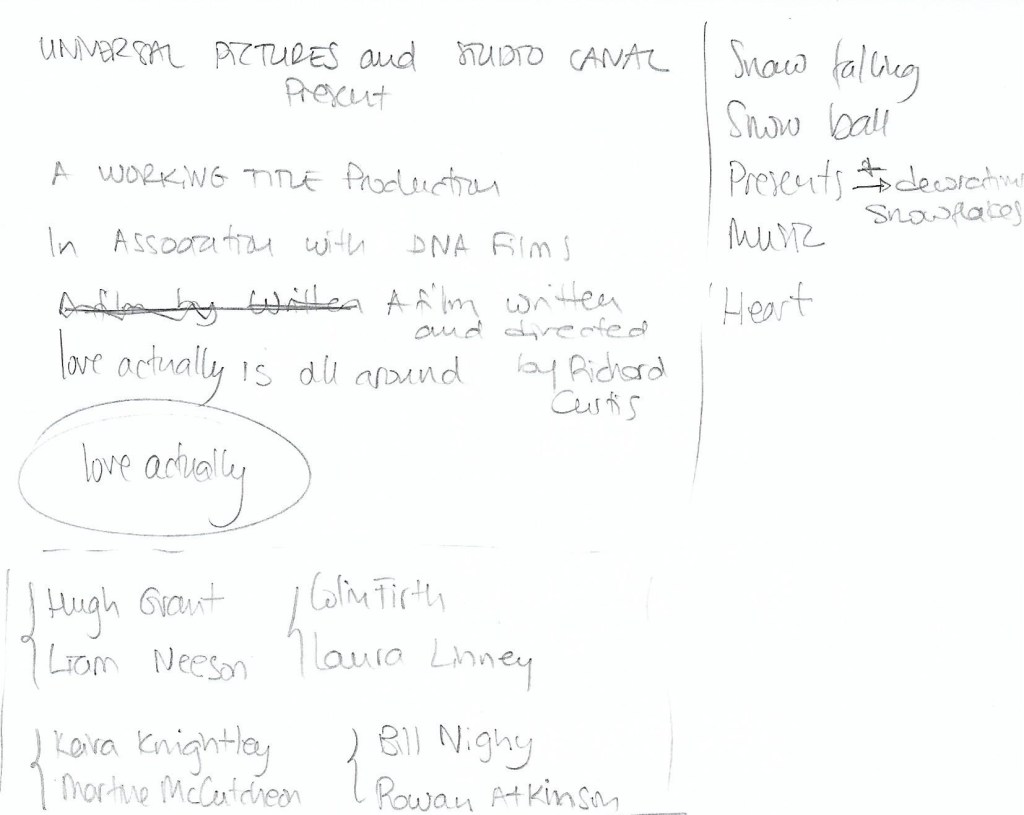 UNIVERSAL PICTURES and STUDIO CANAL
Present
A WORKING TITLE Production
In Association with DNA Films
A film by Written A film written
and directed
by Richard
Curtis
love actually is all around
love actually
Hugh Grant
Liam Neeson
Colin Firth
Laura Linney
Keira Knightley
Martine McCutcheon
Bill Nighy
Rowan Atkinson
Snow falling
Snow ball
Presents + → decorations
Snowflakes
Music
Heart